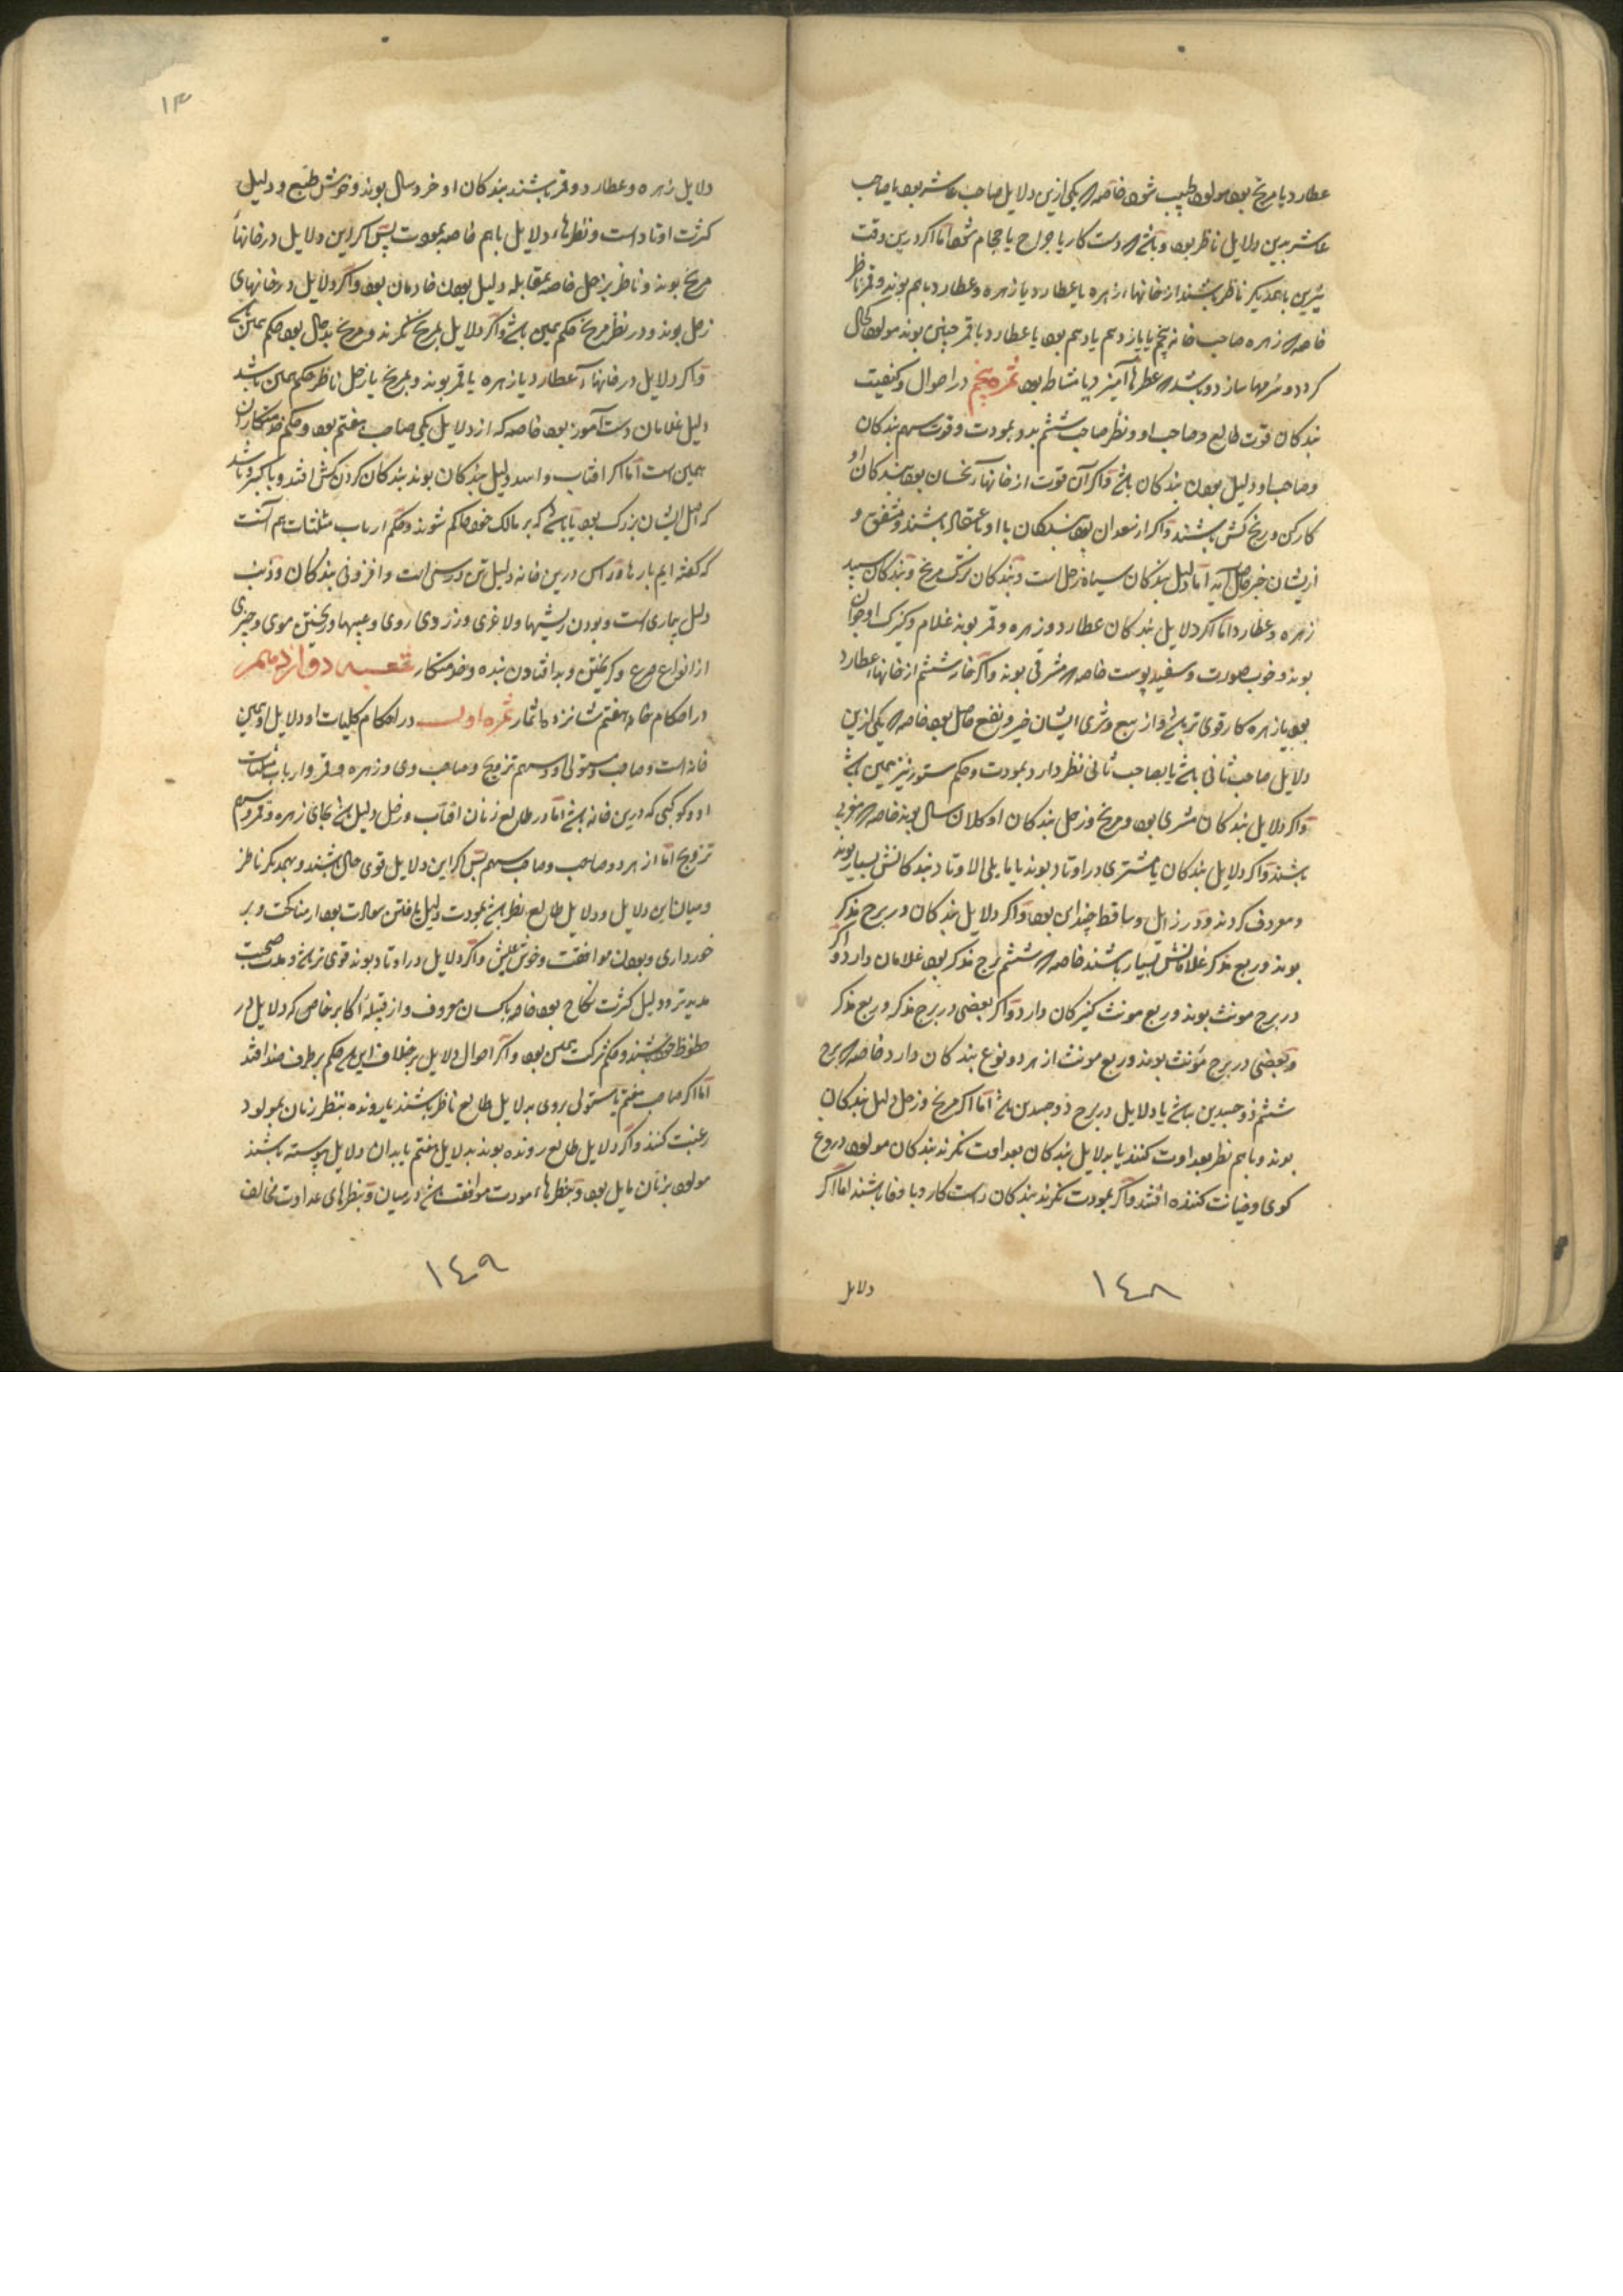 عطارد با مریخ بود مولود طبیب شود خاصه که یکی ازین دلایل صاحب عاشر بود یا صاحب
عاشر بدین دلایل ناظر بود و باشد که دست کار یا جراح یا حجام شود اما اکر درین وقت
نیرین با همدیکر ناظر باشند از خانهاء زهره یا عطارد یا زهره و عطارد باهم بوند و قمر ناظر
خاصه که زهره صاحب خانه پنجم یا یازدهم یا دهم بود یا عطارد با قمر چنین بوند مولود کحال
کردد و سرمها سازد و باشد که عطرها آمیزد یا مشاط بود ثمره پنجم در احوال و کیفیت
بندکان قوت طالع و صاحب او و نظر صاحب ششم بدو بمودت و قوت سهم بندکان
و صاحب او دلیل بودن بندکان باشد و اکر آن قوت از خانهاء نحسان بود بندکان او
کارکن و رنج کش باشند و اکر از سعدان بود بندکان با او با عتقاد باشند و مشفق و
ازیشان خیر حاصل آید اما دلیل بندکان سیاه زحل است و بندکان ترک مریخ و بندکان سپید
زهره و عطارد اما اکر دلایل بندکان عطارد و زهره و قمر بوند غلام و کنیزک او جوان
بوند و خوب صورت و سفید پوست خاصه که مشرقی بوند و اکر خانه ششم از خانهاء عطارد
بود یا زهره کار قوی تر باشد و از بیع و شری ایشان خیر و نفع حاصل بود خاصه که یکی ازین
دلایل صاحب ثانی باشد یا بصاحب ثانی نظر دارد بمودت و حکم ستور نیز همین باشد
و اکر دلایل بندکان مشتری بود و مریخ و زحل بندکان او کلان سال بوند خاصه که مغربی
باشند و اکر دلایل بندکان یا مشتری در اوتاد بوند یا مایلی الاوتاد بندکانش بسیار بوند
و معروف کردند و در زایل و ساقط چندان بود و اکر دلایل بندکان در برج مذکر
بوند و ربع مذکر غلامانش بسیار باشند خاصه که ششم برج مذکر بود غلامان دارد و اکر
در برج مونث بوند و ربع مونث کنیزکان دارد و اکر بعضی در برج مذکر و ربع مذکر
و بعضی در برج مونث بوند و ربع مونث از هر دو نوع بندکان دارد خاصه که برج
ششم ذو جسدین باشد یا دلایل در برج ذو جسدین باشد اما اکر مریخ و زحل دلیل بندکان
بوند و باهم نظر بعداوت کنند یا بدلایل بندکان بعداوت نکرند بندکان مولود دروغ
کوی و خیانت کننده افتند و اکر بمودت نکرند بندکان راست کار و با وفا باشند اما اکر
دلایل
١٤٨
١٣
دلایل زهره و عطارد و قمر باشند بندکان او خرد سال بوند و خوش طبع و دلیل
کثرت اوتاد است و نظرهاء دلایل باهم خاصه بمودت پس اکر این دلایل در خانهاء
مریخ بوند و ناظر بزحل خاصه بمقابله دلیل بودن خادمان بود و اکر دلایل در خانهای
زحل بوند و در نظر مریخ حکم همین باشد و اکر دلایل بمریخ نکرند و مریخ بدحال بود حکم همین باشد
و اکر دلایل در خانهاء عطارد یا زهره یا قمر بوند و بمریخ یا زحل ناظر حکم همین باشد
دلیل غلامان دست آموز بود خاصه که از دلایل یکی صاحب هفتم بود و حکم خدمتکاران
همین است اما اکر افتاب و اسد دلیل بندکان بوند بندکان کردن کش افتند و با کبر و باشد
که اصل ایشان بزرک بود یا باشد که بر مالک خود حاکم شوند و حکم ارباب مثلثات هم آنست
که کفته ایم بارها و راس درین خانه دلیل تن درستی است و افزونی بندکان و ذنب
دلیل بیماری است و بودن ریشها و لاغری و زردی روی و عیبها و ریختن موی و چیزی
از انواع صرع و کریختن و بد افتادن بنده و خدمتکار شعبه دوازدهم
در احکام خانه هفتم شانزده ثمار ثمره اول در احکام کلیات او دلایل او همین
خانه است و صاحب و مستولی او و سهم تزویج و صاحب وی و زهره و قمر و ارباب مثلثات
او و کوکبی که درین خانه باشد اما در طالع زنان افتاب و زحل دلیل باشد بجای زهره و قمر و سهم
تزویج اما از هر دو صاحب و صاحب سهم پس اکر این دلایل قوی حال باشند و بهمدیکر ناظر
و میان این دلایل و دلایل طالع نظر باشد بمودت دلیل یافتن سعادت بود از مناکحت و بر
خورداری و بودن موافقت و خوش عیش و اکر دلایل در اوتاد بوند قوی تر باشد و مدت صحبت
مدیدتر و دلیل کثرت نکاح بود خاصه با کسان معروف و از قبیله اکابر خاصه که دلایل در
حظوظ خود باشند و حکم شرکت همین بود و اکر احوال دلایل بر خلاف این باشد حکم بر طرف ضد افتد
اما اکر صاحب هفتم یا مستولی بروی بدلایل طالع ناظر باشند یا رونده بنظر زنان بمولود
رغبت کنند و اکر دلایل طالع رونده بوند بدلایل هفتم یا بدان دلایل پیوسته باشند
مولود بزنان مایل بود و بنظرهاء مودت موافقت باشد در میان و بنظرهای عداوت مخالف
١٤٩